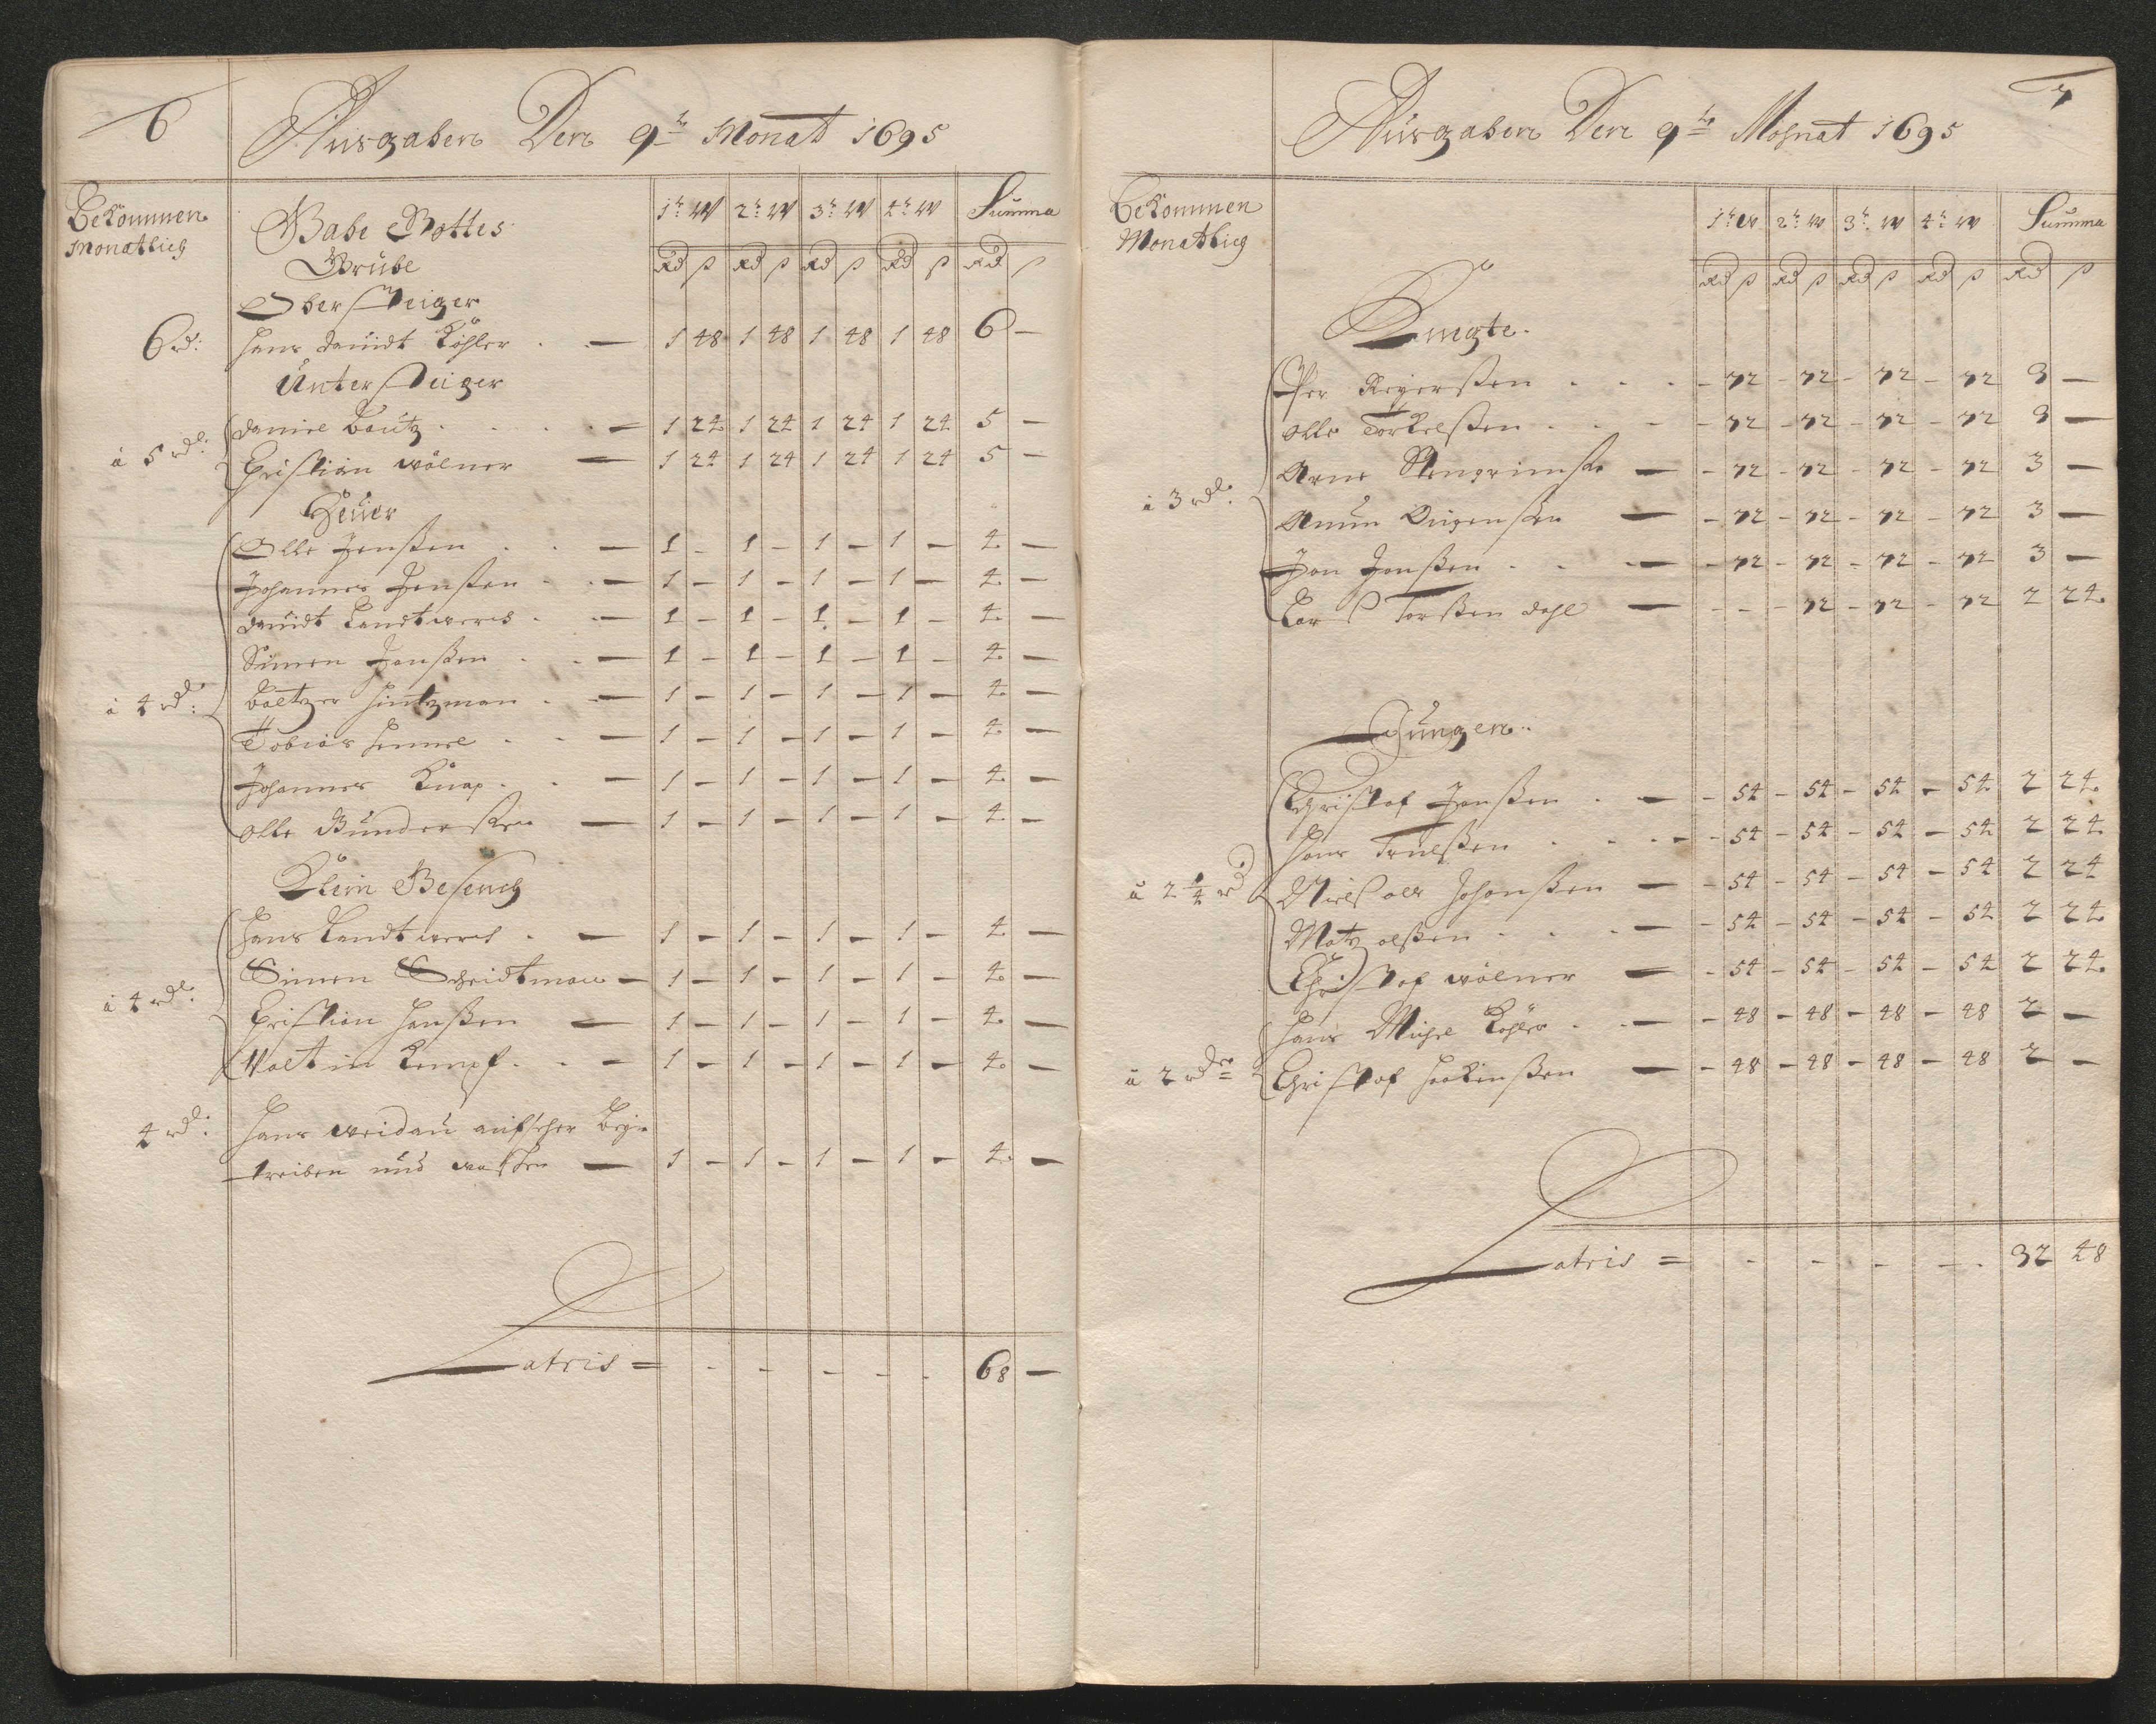 6
Ausgaben Den 9tr Monat 1695
Bekommen Monatlich
Gabe Gottes Grube
1r W 2r W 3r W 4r W Summa
Rd ß Rd ß Rd ß Rd ß Rd ß
Ober Steiger
6 rd: Hans Davidt Köhler — 1 48 1 48 1 48 1 48 6 —
Unter Steiger
à 5 rdl:
Daniel Bautz — 1 24 1 24 1 24 1 24 5 —
Christian Wölner — 1 24 1 24 1 24 1 24 5 —
Heuer
à 4 rd:
Olle Jenßen — 1 – 1 – 1 – 1 – 4 —
Johannes Jenßen — 1 – 1 – 1 – 1 – 4 —
Davidt Landtwercs — 1 – 1 – 1 – 1 – 4 —
Simen Jenßen — 1 – 1 – 1 – 1 – 4 —
Baltzer Hintzman — 1 – 1 – 1 – 1 – 4 —
Tobias — 1 – 1 – 1 – 1 – 4 —
Johannes Knap — 1 – 1 – 1 – 1 – 4 —
Olle Gunderßen — 1 – 1 – 1 – 1 – 4 —
Klein Beseuch
à 4 rdl:
Hans Landtwercs — 1 – 1 – 1 – 1 – 4 —
Simen Scheidtman — 1 – 1 – 1 – 1 – 4 —
Christian Hanßen — 1 – 1 – 1 – 1 – 4 —
Valtin Kempf — 1 – 1 – 1 – 1 – 4 —
4 rd: Hans Weidau aufseher
treiben und — 1 – 1 – 1 – 1 – 4 —
Latris = 68 —
7
Ausgaben Den 9te Mohnat 1695
Bekommen Monatlich
1r W 2r W 3r W 4r W Summa
Rd ß Rd ß Rd ß Rd ß Rd ß
Knegte
à 3 rdl:
Per — 72 – 72 – 72 – 72 3 —
Olle Torkelßen — 72 – 72 – 72 – 72 3 —
Arne — 72 – 72 – 72 – 72 3 —
Amun — 72 – 72 – 72 – 72 3 —
Jon Jonßen — 72 – 72 – 72 – 72 3 —
Lars Torßen Dahl — – – 72 – 72 – 72 2 24
Jungen
à 2 1/4 rd
Christof Jenßen — 54 – 54 – 54 – 54 2 24
Hans Truelßen — 54 – 54 – 54 – 54 2 24
Niels Johanßen — 54 – 54 – 54 – 54 2 24
Matz olßen — 54 – 54 – 54 – 54 2 24
Christof Wölner — 54 – 54 – 54 – 54 2 24
à 2 rdr
Hans Michel Köhler — 48 – 48 – 48 – 48 2 —
Christof Haakinßen — 48 – 48 – 48 – 48 2 —
Latris = 32 48